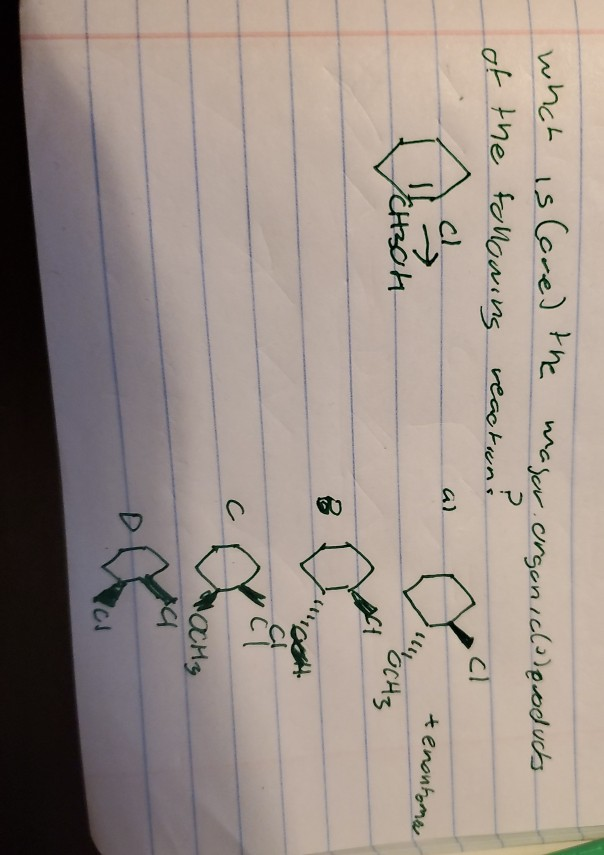 which is (are) the major organic(s) products
of the following reaction?
Cl
→
CH3OH
a)
Cl
OCH3
+ enantomer
B
Cl
Cl
C
Cl
OCH3
D
Cl
Cl